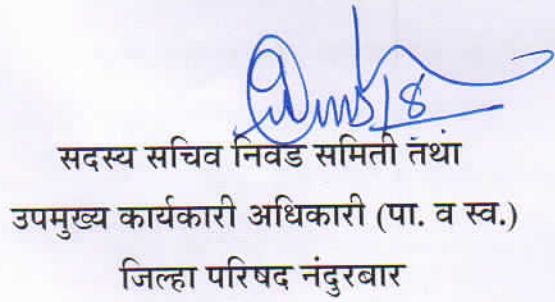 सदस्य सचिव निवड समिती तथा
उपमुख्य कार्यकारी अधिकारी (पा. व स्व.)
जिल्हा परिषद नंदुरबार